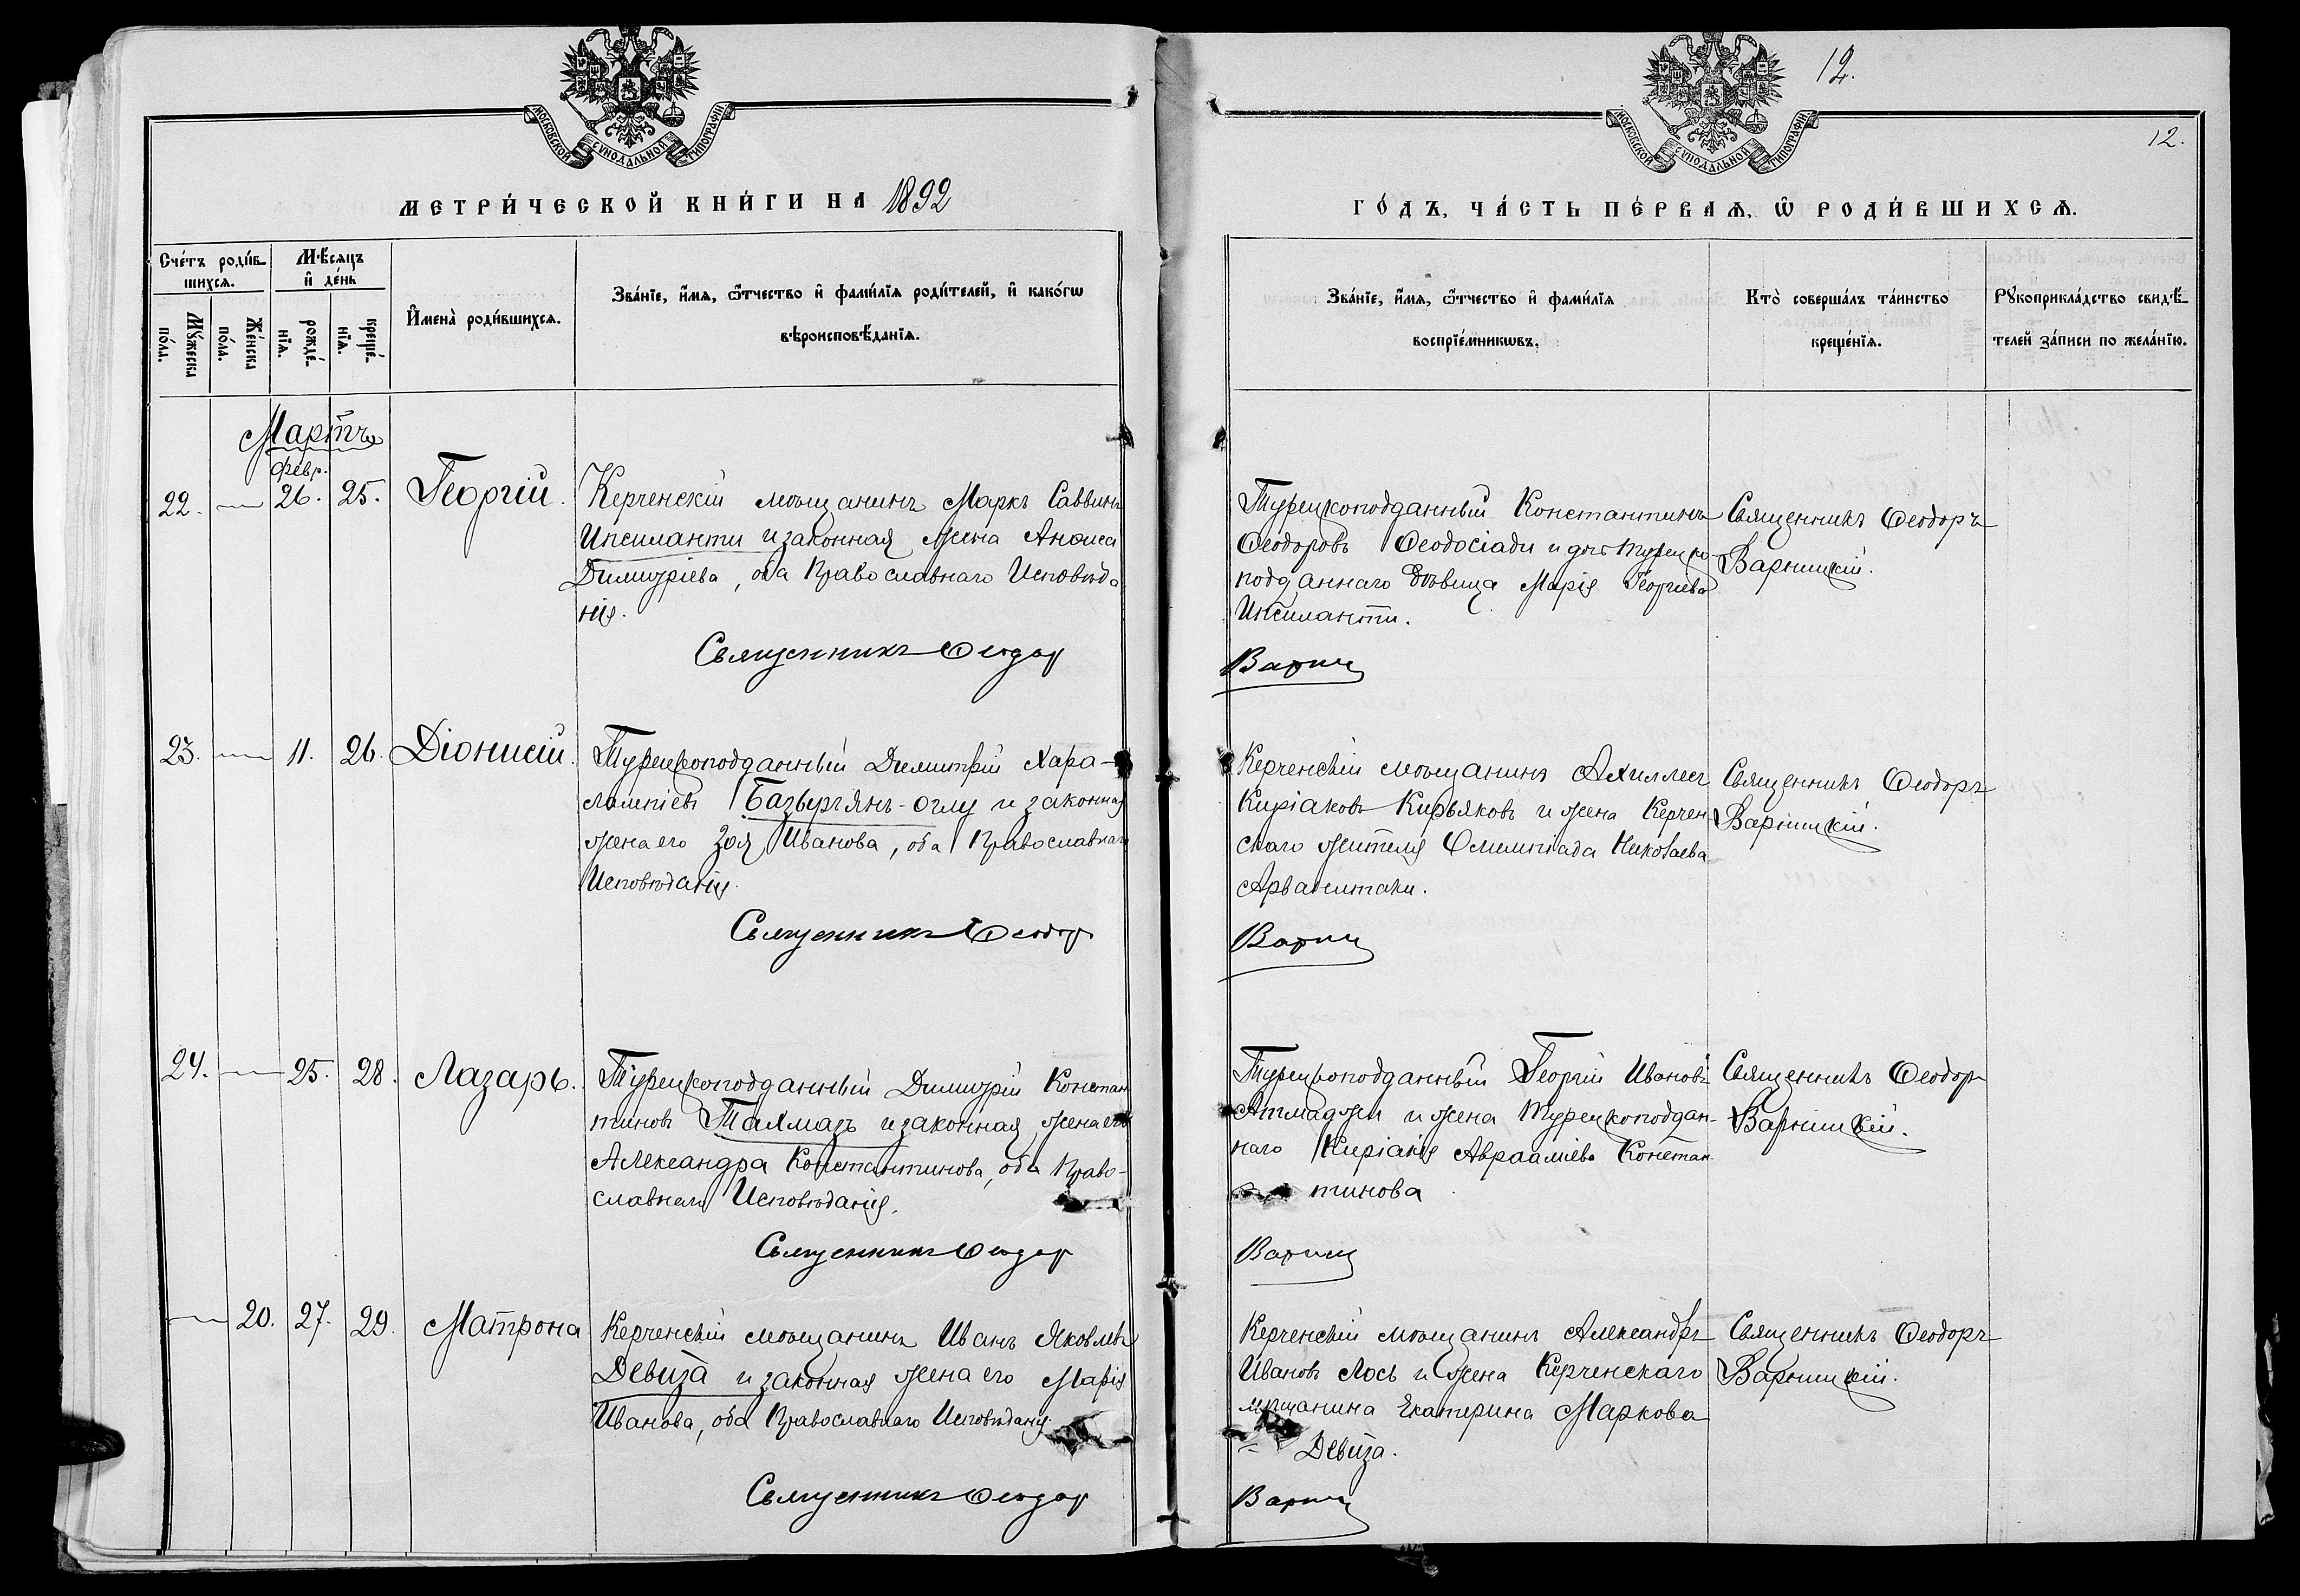 МОСКОВСКОЙ СѴНОДАЛЬНОЙ ТИПОГРАФІИ
МЕТРИ́ЧЕСКОЙ КНИ́ГИ НА 1892
Сче́тъ роди́в-
шихсѧ.
Мѣ́сѧцъ
и҆ де́нь
Мꙋ́жеска
по́ла.
Же́нска
по́ла.
рожде́-
нїѧ.
креще́-
нїѧ.
И҆мена̀ роди́вшихсѧ.
Зва́нїе, и҆́мѧ, ѻ҆́тчество и҆ фами́лїѧ роди́телей, и҆ како́гѡ
вѣроисповѣ́данїѧ.
Мартъ
февр.
22. — 26. 25. Георгій.
Керченскій мѣщанинъ Маркъ Саввинъ
Ипсиланти и законная жена Анѳиса
Димитріева, оба Православнаго Исповѣда
нія.
Священникъ Ѳеодор
23. — 11. 26. Діонисій.
Турецкоподданный Димитрій Хара-
лампіевъ Базыргянъ-оглу и законная
жена его Зоя Иванова, оба Православнаго
Исповѣданія.
Священникъ Ѳеодор
24. — 25. 28. Лазарь.
Турецкоподданный Димитрій Констан
тиновъ Тахмазъ и законная жена его
Александра Константинова, оба Право-
славнаго Исповѣданія.
Священникъ Ѳеодор
— 20. 27. 29. Матрона
Керченскій мѣщанинъ Иванъ Яковлевъ
Девиза и законная жена его Марія
Иванова, оба Православнаго Исповѣданія.
Священникъ Ѳеодор
12.
МОСКОВСКОЙ СѴНОДАЛЬНОЙ ТИПОГРАФІИ
12.
ГО́ДЪ, ЧА́СТЬ ПЕ́РВАѦ, Ѡ҆ РОДИ́ВШИХСѦ.
Зва́нїе, и҆́мѧ, ѻ҆́тчество и҆ фами́лїѧ
воспрїе́мникѡвъ.
Кто̀ соверша́лъ та́инство
креще́нїѧ.
Рꙋкоприкла́дство свидѣ́-
телей за́писи по жела́нїю.
Турецкоподданный Константинъ
Ѳеодоровъ Ѳеодосіади и дочь турецко-
подданнаго дѣвица Марія Георгіева
Ипсиланти.
Священникъ Ѳеодоръ
Варницкій.
Варниц
Керченскій мѣщанинъ Ахиллесъ
Киріаковъ Кирьяковъ и жена Керчен-
скаго жителя Олимпіада Николаева
Арванитаки.
Священникъ Ѳеодоръ
Варницкій.
Варниц
Турецкоподданный Георгій Ивановъ
Атмаджи и жена Турецкоподдан-
наго Киріакія Аврааміева Констан-
тинова
Священникъ Ѳеодоръ
Варницкій.
Варниц
Керченскій мѣщанинъ Александръ
Ивановъ Лось и жена Керченскаго
мѣщанина Екатерина Маркова
Девиза.
Священникъ Ѳеодоръ
Варницкій.
Варниц